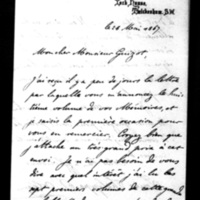 York House,
Twickenham, S.W.
le 28 Mai 1867
Mon cher Monsieur Guizot,
J'ai reçu il y a peu de jours la lettre
par laquelle vous m'annoncez le hui-
tième volume de vos Mémoires, et
je saisis la première occasion pour
vous en remercier. Croyez bien que
j'attache un très grand prix à cet
envoi. Je n'ai pas besoin de vous
dire avec quel intérêt j'ai lu les
sept premiers volumes de cette grand